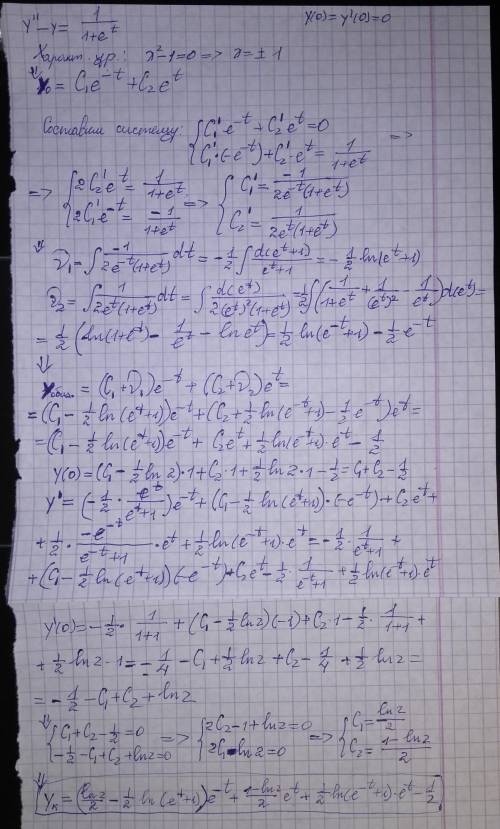 y'' - y = 1/(1+e^t)    y(0) = y'(0) = 0
Характ. ур.: λ²-1=0 => λ = ± 1
y₀ = C₁e^-t + C₂e^t
Составим систему: { C₁'·e^-t + C₂'e^t = 0
{ C₁'·(-e^-t) + C₂'·e^t = 1/(1+e^t) =>
=> { 2C₂'e^t = 1/(1+e^t)
{ 2C₁'e^-t = -1/(1+e^t) => { C₁' = -1/(2e^-t(1+e^t))
{ C₂' = 1/(2e^t(1+e^t))
ṽ₁ = ∫ -1/(2e^-t(1+e^t)) dt = -1/2 ∫ d(e^t+1)/(e^t+1) = -1/2 ln(e^t+1)
ṽ₂ = ∫ 1/(2e^t(1+e^t)) dt = ∫ d(e^t)/(2(e^t)²(1+e^t)) = 1/2 ∫ (1/(1+e^t) + 1/(e^t)² - 1/e^t) d(e^t) =
= 1/2 (ln(1+e^t) - 1/e^t - ln e^t) = 1/2 ln(e^-t+1) - 1/2 e^-t
y общ. = (C₁+ṽ₁)e^-t + (C₂+ṽ₂)e^t =
= (C₁ - 1/2 ln(e^t+1))e^-t + (C₂ + 1/2 ln(e^-t+1) - 1/2 e^-t)e^t =
= (C₁ - 1/2 ln(e^t+1))e^-t + C₂e^t + 1/2 ln(e^-t+1)·e^t - 1/2
y(0) = (C₁ - 1/2 ln 2)·1 + C₂·1 + 1/2 ln 2·1 - 1/2 = C₁ + C₂ - 1/2
y' = (-1/2 · e^t/(e^t+1))e^-t + (C₁ - 1/2 ln(e^t+1))·(-e^-t) + C₂e^t +
+ 1/2 · -e^-t/(e^-t+1) · e^t + 1/2 ln(e^-t+1)·e^t = -1/2 · 1/(e^t+1) +
+ (C₁ - 1/2 ln(e^t+1))(-e^-t) + C₂e^t - 1/2 · 1/(e^-t+1) + 1/2 ln(e^-t+1)·e^t
y'(0) = -1/2 · 1/(1+1) + (C₁ - 1/2 ln 2)(-1) + C₂·1 - 1/2 · 1/(1+1) +
+ 1/2 ln 2·1 = -1/4 - C₁ + 1/2 ln 2 + C₂ - 1/4 + 1/2 ln 2 =
= -1/2 - C₁ + C₂ + ln 2
{ C₁ + C₂ - 1/2 = 0
{ -1/2 - C₁ + C₂ + ln 2 = 0 => { 2C₂ - 1 + ln 2 = 0
{ 2C₁ - ln 2 = 0 => { C₁ = ln 2/2
{ C₂ = (1 - ln 2)/2
yк = (ln 2/2 - 1/2 ln(e^t+1))e^-t + (1-ln 2)/2 e^t + 1/2 ln(e^-t+1)·e^t - 1/2